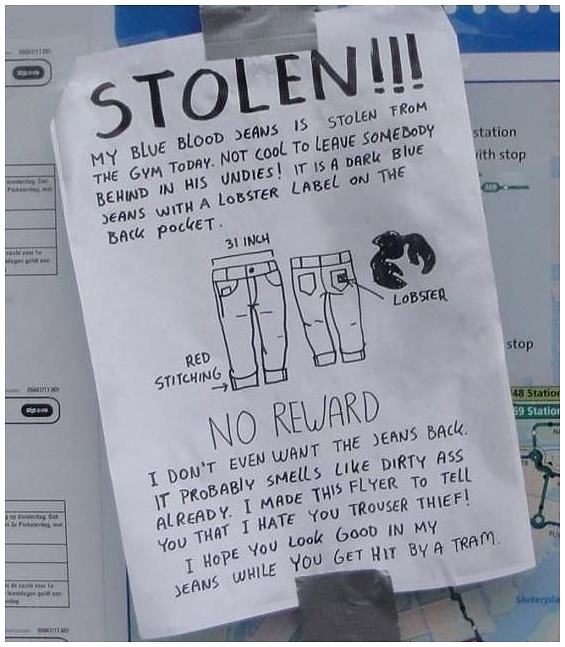 STOLEN!!!
MY BLUE BLOOD JEANS IS STOLEN FROM
THE GYM TODAY. NOT COOL TO LEAVE SOMEBODY
BEHIND IN HIS UNDIES! IT IS A DARK BLUE
JEANS WITH A LOBSTER LABEL ON THE
BACK POCKET.
31 INCH
LOBSTER
RED
STITCHING
NO REWARD
I DON'T EVEN WANT THE JEANS BACK.
IT PROBABLY SMELLS LIKE DIRTY ASS
ALREADY. I MADE THIS FLYER TO TELL
YOU THAT I HATE YOU TROUSER THIEF!
I HOPE YOU LOOK GOOD IN MY
JEANS WHILE YOU GET HIT BY A TRAM.
station
ith stop
stop
48 Station
69 Station
Sloterpla